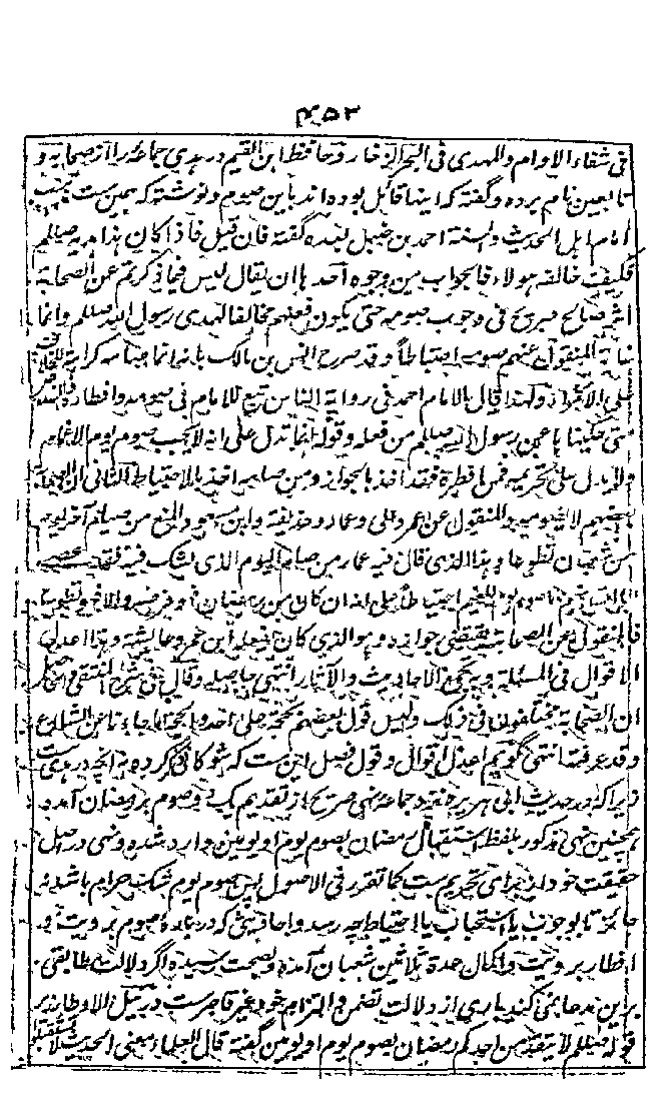 ۴۵۳
فی شفاء الاوام والمهدی فی البحر الزخار وحافظ ابن القیم در هدی جماعه را از صحابه و
تابعین نام برده وگفته که اینها قائل بوده اند باین صوم ونوشته که همین ست مذهب
امام اهل الحدیث والسنة احمد بن حنبل بعده گفته فان قیل فاذا کان هذا هدیه صلعم
فکیف خالفه هولاء فالجواب من وجوه احدها ان یقال لیس فیما ذکرتم عن الصحابة
اثر صالح صریح فی وجوب صومه حتی یکون فعلهم مخالفا لهدی رسول الله صلعم وانما
غایة المنقول عنهم صومه احتیاطاً وقد صرح انس بن مالک بانه انما صامه کراهة للخلاف
علی الامراء ولهذا قال الامام احمد فی روایة الناس تبع للامام فی صومه وافطاره والنصوص التی
حکیناها عن رسول الله صلعم من فعله وقوله انما تدل علی انه لا یجب صوم یوم الاغمام
ولا تدل علی تحریمه فمن افطره فقد اخذ بالجواز ومن صامه اخذ بالاحتیاط الثانی ان الصحابة
بعضهم لا یصومه والمنقول عن عمر وعلی وعمار وحذیفة وابن مسعود المنع من صیام آخر یوم
من شعبان تطوعا وهذا الذی قال فیه عمار من صام الیوم الذی یشک فیه فقد عصی
احتیاطا علی انه ان کان من رمضان فهو فرضه والا فهو تطوع
فالمنقول عن الصحابة یقتضی جوازه وهو الذی کان یفعله ابن عمر وعایشة وهذا اعدل
الاقوال فی المسئلة وبه یجتمع الاحادیث والآثار انتهی حاصله وقال فی شرح المنتقی والحاصل
ان الصحابة مختلفون فی ذلک ولیس قول بعضهم بحجة علی احد والحجة ما جاءنا عن الشارع
وقد عرفته انتهی گویم اعدل اقوال وقول فصل این ست که شوکانی ذکر کرده نه آنچه در هدی ست
زیرا که در حدیث ابی هریره نزد جماعه نهی صریح از تقدیم یک دو صوم بر رمضان آمده
همچنین نهی مذکور بلفظ استقبال رمضان بصوم یوم او یومین وارد شده ونهی در اصل
حقیقت خود از برای تحریم ست کما تقرر فی الاصول پس صوم یوم شک حرام باشد نه
جائز تا بوجوب یا استحباب یا احتیاط چه رسد واحادیثی که درباره صوم برویت و
افطار برویت واکمال عدة ثلاثین شعبان آمده وبصحت رسیده اگر دلالت مطابقی
برین مدعا نمی کند باری از دلالت تضمن والتزام خود غیر قاصر ست در نیل الاوطار زیر
قوله صلعم لا یتقدمن احدکم رمضان بصوم یوم او یومین گفته قال العلماء معنی الحدیث لا تستقبلوا